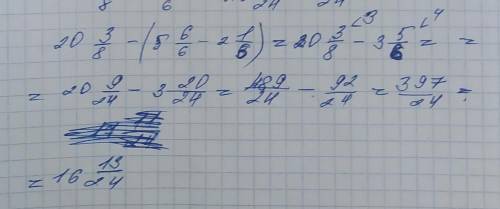 8 6 24 24
20 3/8 - (5 6/6 - 2 1/6) = 20 3/8 - 3 5/6 = =
= 20 9/24 - 3 20/24 = 489/24 - 92/24 = 397/24 =
= 16 13/24